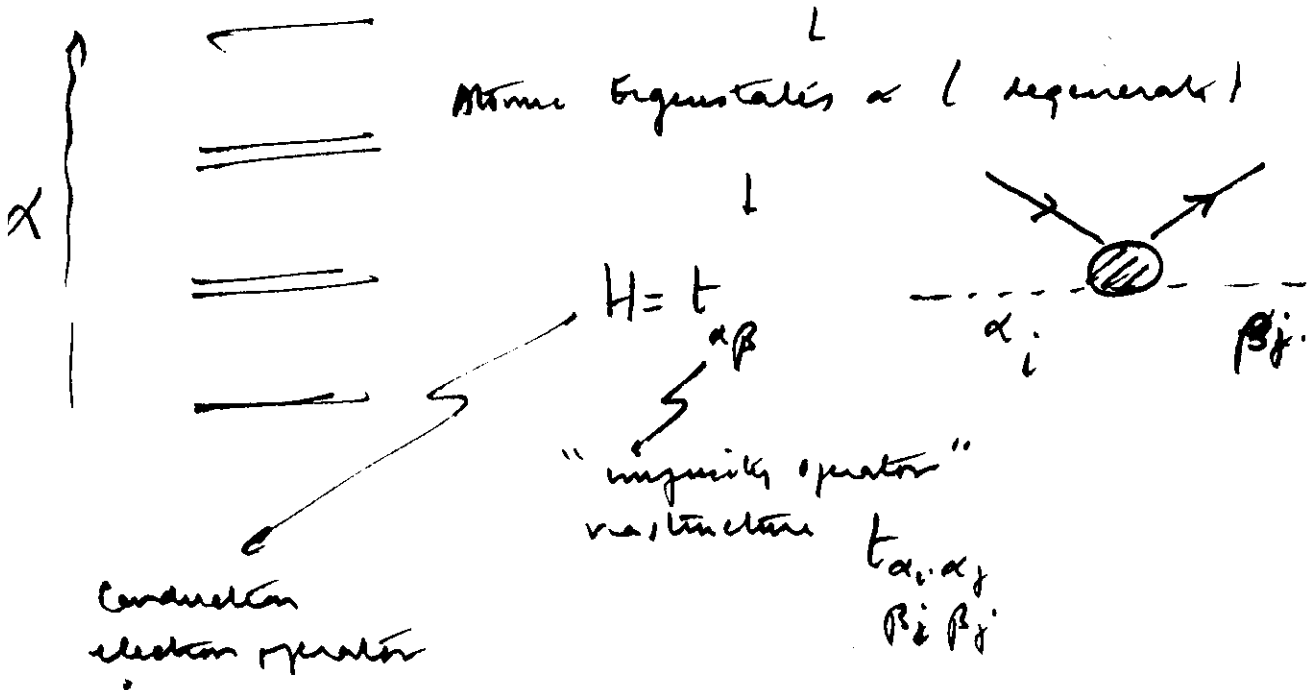 Atomic Eigenstates α ( degenerate )
α
H = t
αβ
α i
βj.
"impurity operator"
structure
t αi αj
βi βj
Conduction
electron operator